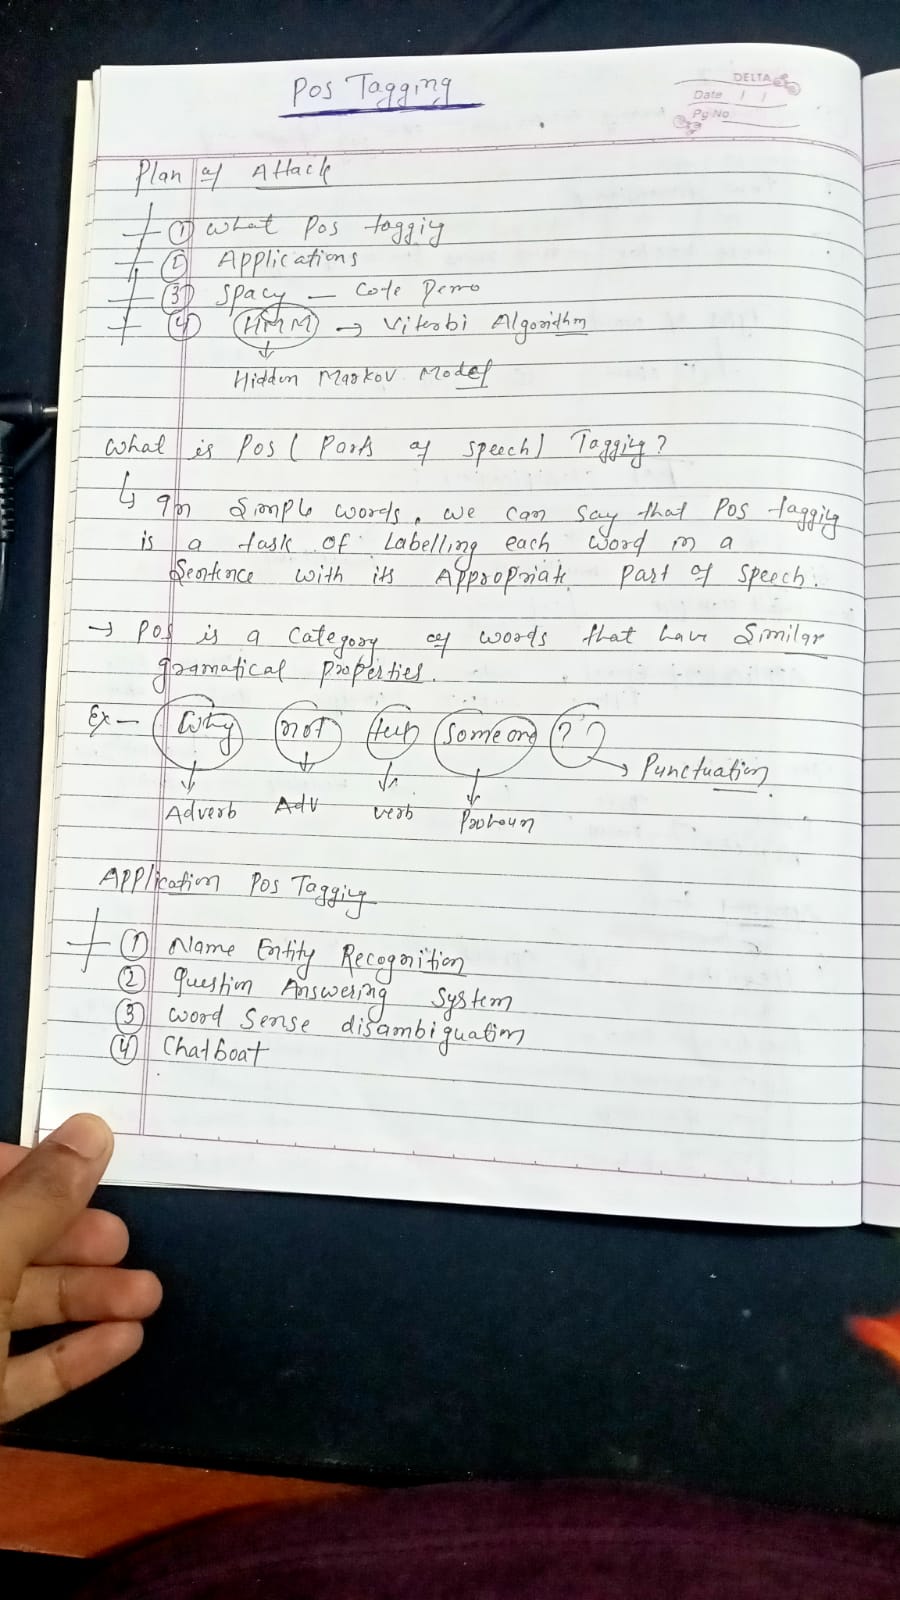 Pos Tagging
DELTA
Date / /
Pg No
Plan of Attack
① What Pos tagging
② Applications
③ Spacy — Code Demo
④ HMM → Viterbi Algorithm
Hidden Markov Model
What is Pos (Parts of speech) Tagging?
↳ In Simple words, we can say that Pos tagging
is a task of Labelling each word in a
Sentence with its Appropriate Part of speech.
→ Pos is a Category of words that have Similar
gramatical properties.
Ex — Why not Help Someone ?
→ Punctuation
Adverb Adv verb Pronoun
Application Pos Tagging
① Name Entity Recognition
② Question Answering System
③ Word Sense disambiguation
④ Chatboat